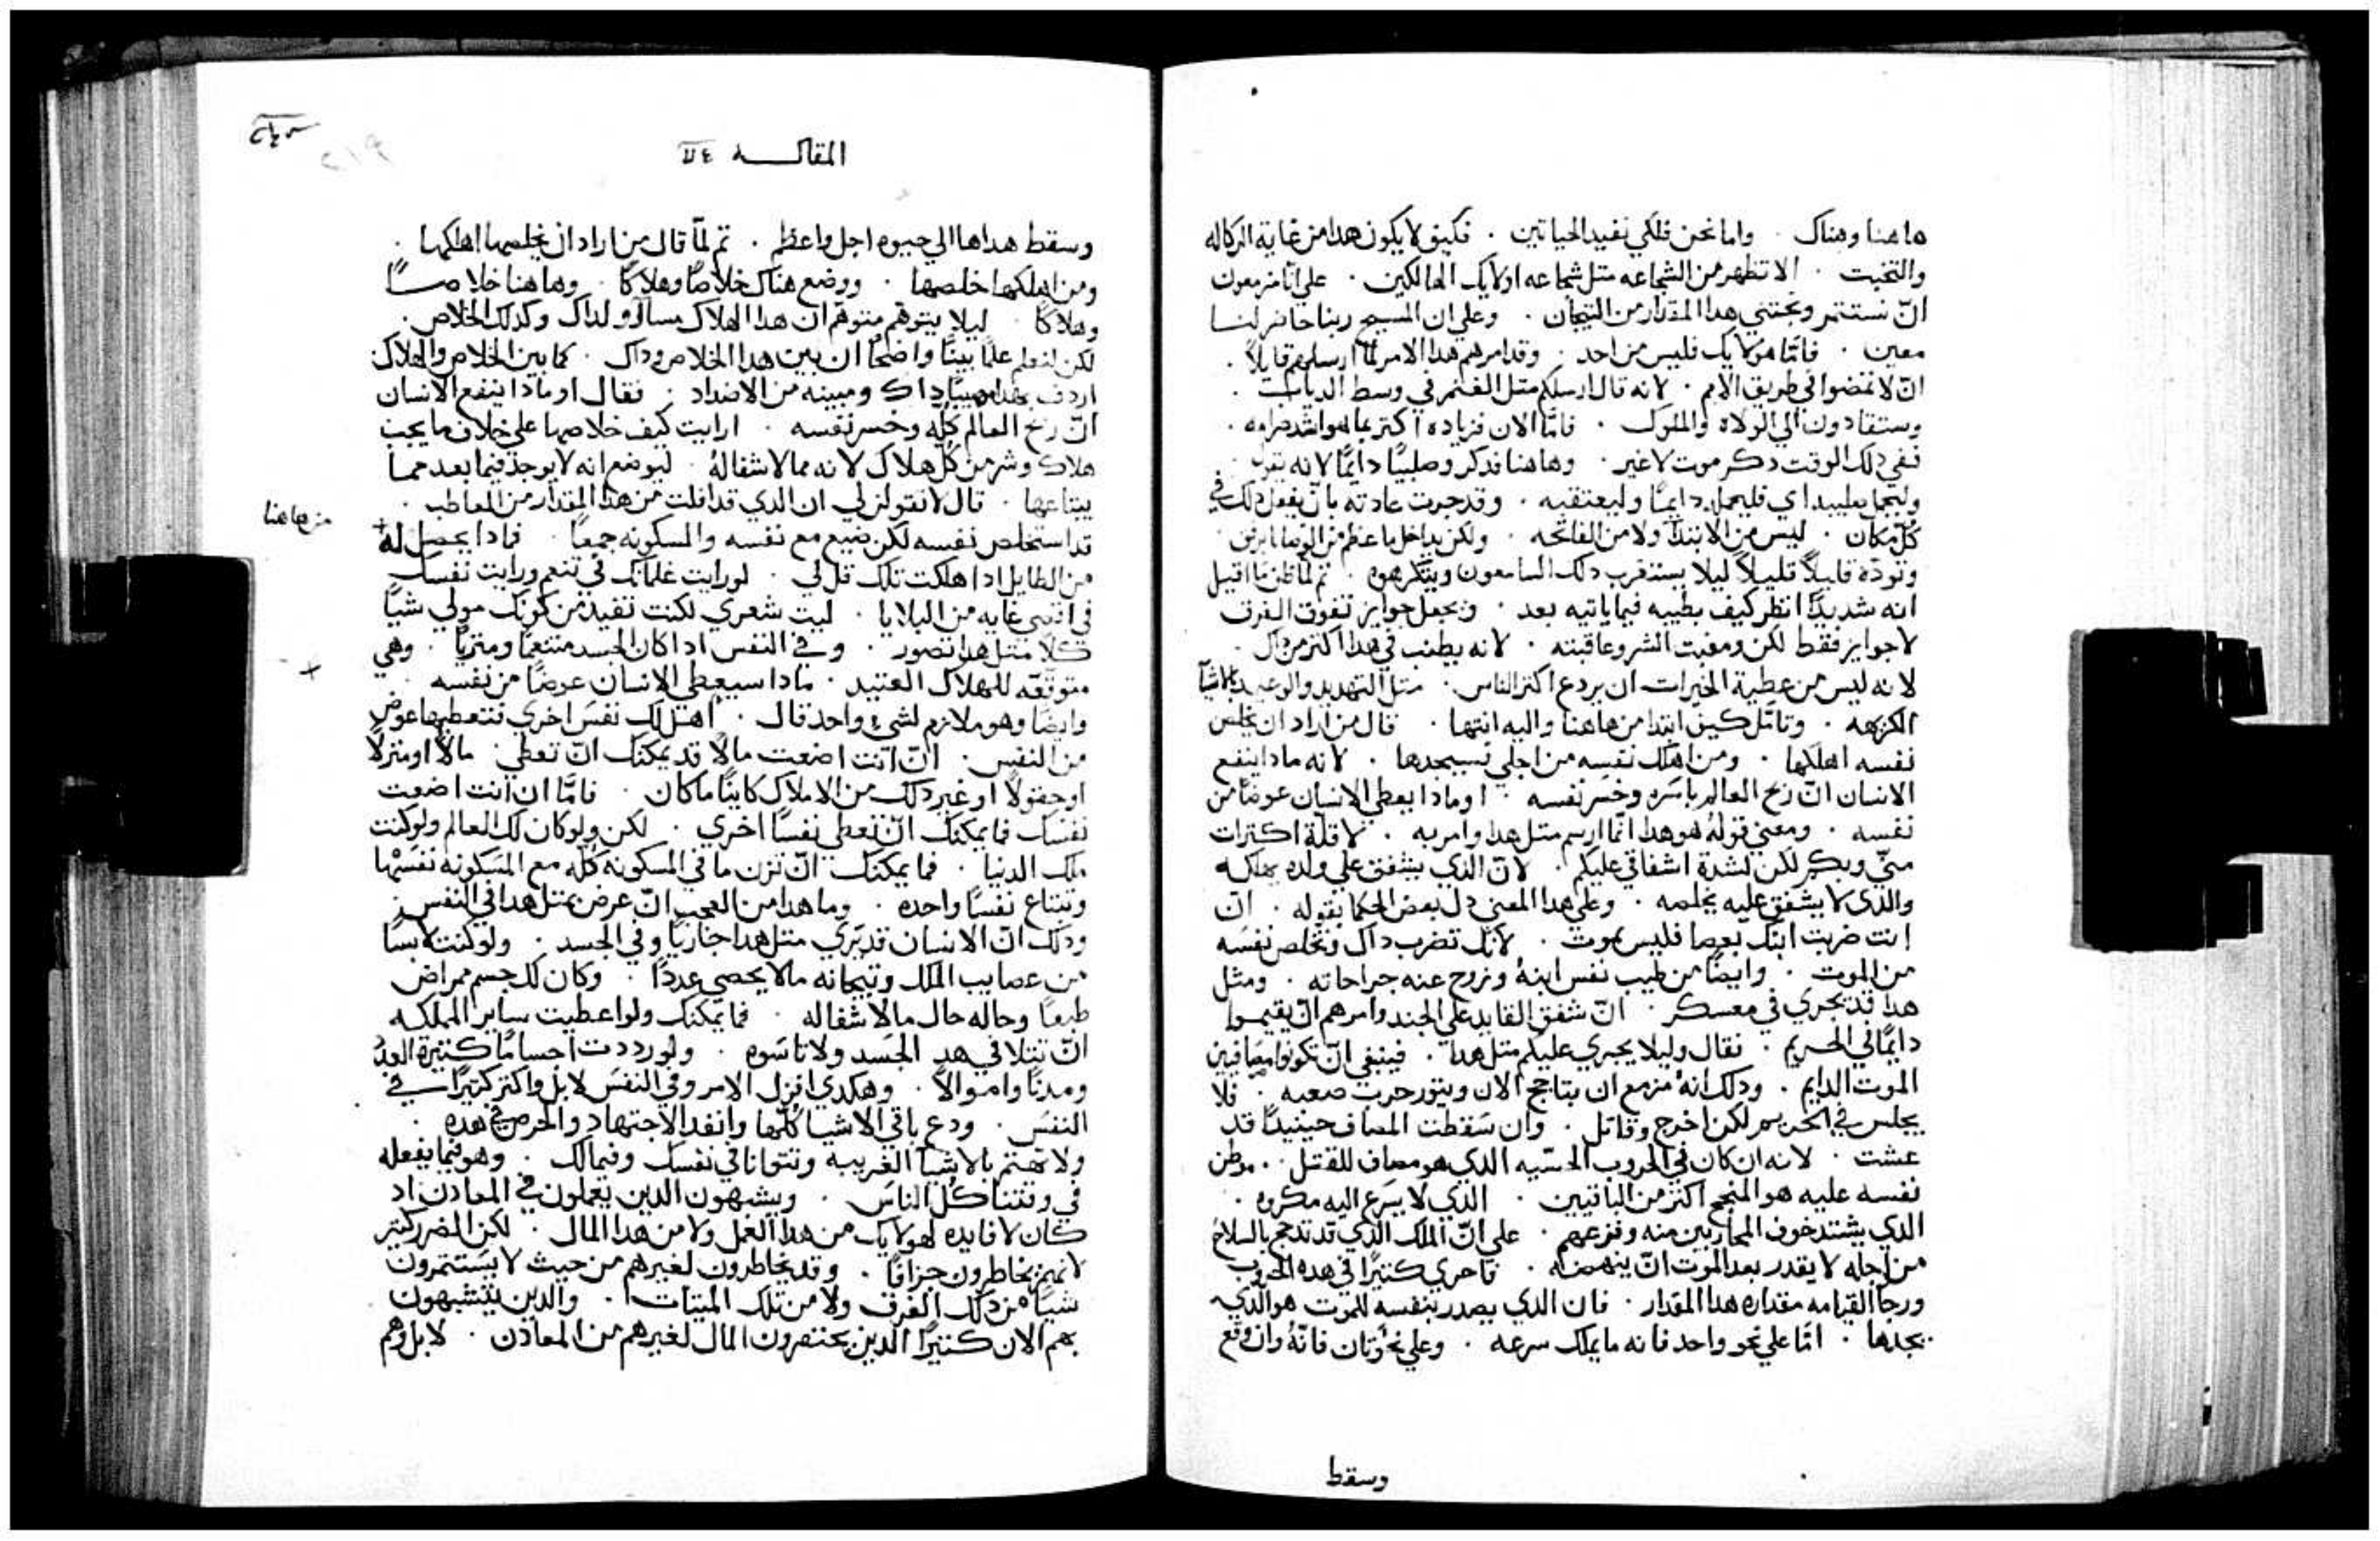 هاهنا وهناك . واما نحن فلكي نفيد الحياتين . فكيف لا يكون هدا من غاية الركاله
والتخنيت . الا تظهر من الشجاعه متل شجاعه اولايك الهالكين . علي انا مزمعون
انّ نستتمر ونجتني هدا المقدار من التيجان . وعلي ان المسيح ربنا حاضر لنا
معين . فامّا هولايك فليس من احد . وقد امرهم هدا الامر لمّا ارسلهم قايلاً .
انّ لا تمضوا في طريق الامم . لانه قال ارسلكم متل الغنم في وسط الدياب .
وستقادون الي الولاه والملوك . فامّا الان فزياده اكتر مما هو اشد صرامه .
ففي دلك الوقت دكر موت لا غير . وهاهنا فدكر وصليبًا دايمًا لانه يقول
وليحمل صليبه اي فليحمله دايمًا وليعتقبه . وقد جرت عادته بانّ يفعل دلك في
كُلّ مكان . ليس من الابتدآ ولا من الفاتحه . ولكن يداخل ما عظم من الوصايا برفق
وتودّه قليلاً قليلاً ليلا يستغرب دلك السامعون ويتكرهوه . تم لمّا ظن ما قيل
انه شديدًا انظر كيف يطيبه فيما ياتيه بعد . ويجعل جوايز تفوق العرق
لا جوايز فقط لكن ومغبت الشر وعاقبته . لانه يطنب في هدا اكتر من داك .
لانه ليس من عطية الخيرات ان يردع اكتر الناس . متل التهديد والوعيد بالاشيآ
الكريهه . وتامّل كيف ابتدا من هاهنا واليه انتها . قال من اراد ان يخلص
نفسه اهلكها . ومن اهلك نفسه من اجلي فسيجدها . لانه مادا ينفع
الانسان انّ ربح العالم باسره وخسر نفسه . او مادا يعطي الانسان عوضًا من
نفسه . ومعني قوله هو هدا انّما ارسم متل هدا وامر به . لا قلّة اكترات
منّي وبكم لكن لشدة اشفاقي عليكم . لانّ الدي يشفق علي ولده يهلكه
والدي لا يشفق عليه يخلصه . وعلي هدا المعني دل بعض الحكما بقوله . انّ
انت ضربت ابنك بعصا فليس يموت . لانّك تضرب داك وتخلص نفسه
من الموت . وايضًا من طيب نفس ابنهُ ونزح عنه جراحاته . ومثل
هدا قد يجري في معسكر . انّ شفق القايد علي الجند وامرهم انّ يقيموا
دايمًا في الحريم . فقال وليلا يجري عليكم متل هدا . فينبغي انّ تكونوا مصافين
الموت الدايم . ودلك انهُ مزمع ان يتاجج الان ويتور حرب صعبه . فلا
يجلس في الحريم لكن اخرج وقاتل . وان سقطت المصاف حينيدًا قد
عشت . لانه ان كان في الحروب الحسّيه الدي هو مصاف للقتل . موطن
نفسه عليه هو المنجح اكتر من الباقيين . الدي لا يسرع اليه مكروه .
الدي يشتد خوف المحاربين منه وفزعهم . علي انّ الملك الدي قد تدجج بالسلاح
من اجله لا يقدر بعد الموت انّ ينهضه . فاحري كتيرًا في هده الحروب
ورجا القيامه مقداره هدا المقدار . فان الدي يصدر بنفسه للموت هو الدي
يجدها . امّا علي نحو واحد فانه ما يملك سرعه . وعلي نحو تان فانّهُ وان وقع
وسقط
المقاله
وسقط هداها الي حيوه اجل واعظم . تم لمّا قال من اراد ان يخلصها اهلكها .
ومن اهلكها خلصها . ووضع هناك خلاصًا وهلاكًا . وهاهنا خلاصًا
وهلاكًا . ليلا يتوهم متوهم ان هدا الهلاك مساوٍ لداك وكدلك الخلاص .
لكن لنعلم علمًا بينًا واضحًا ان بين هدا الخلاص وداك . كما بين الخلاص والهلاك
اردف بهدا مبينًا داك ومبينه من الاضداد . فقال او مادا ينفع الانسان
انّ ربح العالم كُلّه وخسر نفسه . ارايت كيف خلاصها علي خلاف ما يجب
هلاك وشر من كُل هلاك لانه مما لا شفا لهُ . ليوضح انه لا يوجد فيما بعد مما
يبتاعها . قال لا تقولن لي ان الدي قد افلت من هدا المقدار من المعاطب .
قد استخلص نفسه لكن ضيع مع نفسه والمسكونه جمعًا . فمادا يحصل له
من هاهنا
من الطايل ادا هلكت تلك قل لي . لو رايت غلمانك في تنعم ورايت نفسك
في اقصي غايه من البلايا . ليت شعري لكنت تفيد من كونك مولي شيًا
كلاّ متل هدا تصور . وفي النفس ادا كان الجسد متنعمًا ومتريًا . وهي
متوقعه للهلاك العتيد . مادا سيعطي الانسان عوضًا من نفسه .
وايضًا وهو ملازم لشي واحد قال . اهل لك نفس اخري فتعطيها عوض
من النفس . انّ انت اضعت مالاً قد يمكنك انّ تعطي . مالاً او منزلاً
او حقولاً او غير دلك من الاملاك كاينًا ما كان . فامّا ان انت اضعت
نفسك فما يمكنك انّ تعطي نفسًا اخري . لكن ولو كان لك العالم ولو كنت
ملك الدنيا . فما يمكنك انّ تزن ما في المسكونه كُلّه مع المسكونه نفسها
وتبتاع نفسًا واحده . وما هدا من العجب انّ عرض متل هدا في النفس .
ودلك انّ الانسان قد يري متل هدا جاريًا وفي الجسد . ولو كنت لابسًا
من عصايب الملك وتيجانه ما لا يحصي عددًا . وكان لك جسم ممراض
طبعًا وحاله حال ما لا شفا له . فما يمكنك ولو اعطيت ساير المملكه
انّ تتلافي هدا الجسد ولا تاسوه . ولو رددت اجسامًا كتيرة العدد
ومدنًا واموالاً . وهكدي افزل الامر وفي النفس لا بل واكتر كتيرًا في
النفس . ودع باقي الاشيا كُلّها وانفد الاجتهاد والحرص في هده .
ولا تهتم بالاشيآ الغريبه وتتوانا في نفسك وفيما لك . وهو فيما يفعله
في وقتنا كُل الناس . ويشبهون الدين يعملون في المعادن اد
كان لا فايده لهولايك من هدا العمل ولا من هدا المال . لكن المضره كتير
لانهم يخاطرون جزافًا . وقد يخاطرون لغيرهم من حيث لا يستتمرون
شيًا من دلك العرق ولا من تلك الميتات . والدين يتشبهون
بهم الان كتيرًا الدين يحتفرون المال لغيرهم من المعادن . لا بل وهم